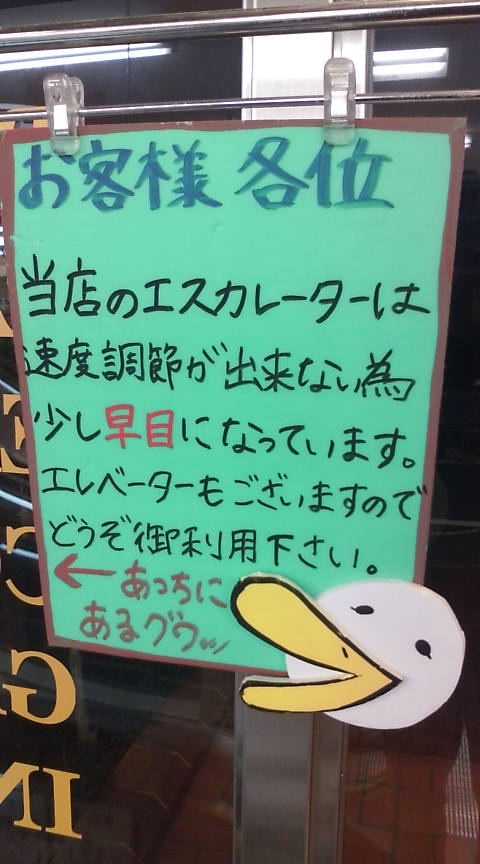 お客様 各位
当店のエスカレーターは
速度調節が出来ない為
少し早目になっています。
エレベーターもございますので
どうぞ御利用下さい。
← あっちに
あるグワッ